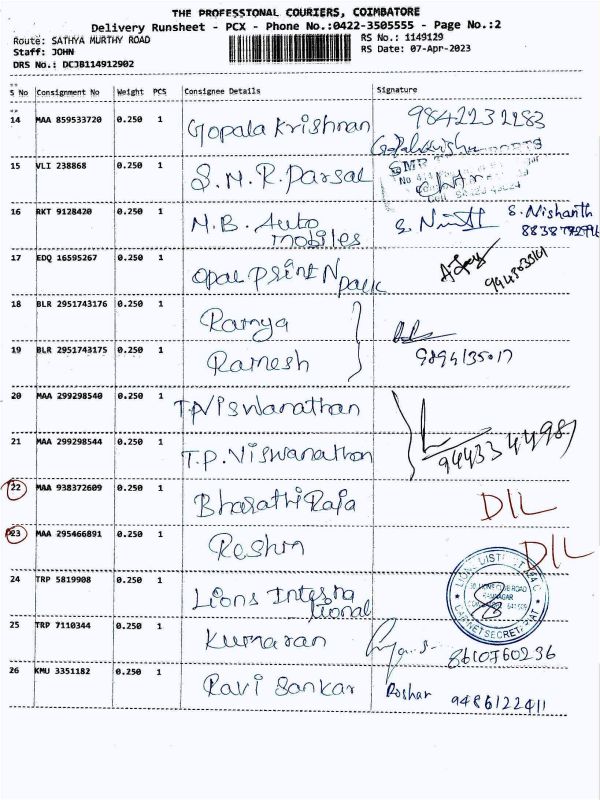 THE PROFESSIONAL COURIERS, COIMBATORE
Delivery Runsheet - PCX - Phone No.:0422-3505555 - Page No.:2
Route: SATHYA MURTHY ROAD
RS No.: 1149129
Staff: JOHN
RS Date: 07-Apr-2023
DRS No.: DCJB114912902
S No Consignment No Weight PCS Consignee Details Signature
14 MAA 859533720 0.250 1 Gopala Krishnan 9842232283
15 VLI 238868 0.250 1 S.M.R. Parsal
16 RKT 9128420 0.250 1 M.B. Auto S. Nishanth
mobiles
17 EDQ 16595267 0.250 1 Opal Print N
pack
18 BLR 2951743176 0.250 1 Ramya
19 BLR 2951743175 0.250 1 Ramesh 9894135017
20 MAA 299298540 0.250 1 T.P.Viswanathan
21 MAA 299298544 0.250 1 T.P.Viswanathan
22 MAA 938372609 0.250 1 Bharathi Raja D/L
23 MAA 295466891 0.250 1 Reshm D/L
24 TRP 5819908 0.250 1 Lions Interna
tional
25 TRP 7110344 0.250 1 Kumaran 8610760236
26 KMU 3351182 0.250 1 Ravi Sankar Roshan 9486122411